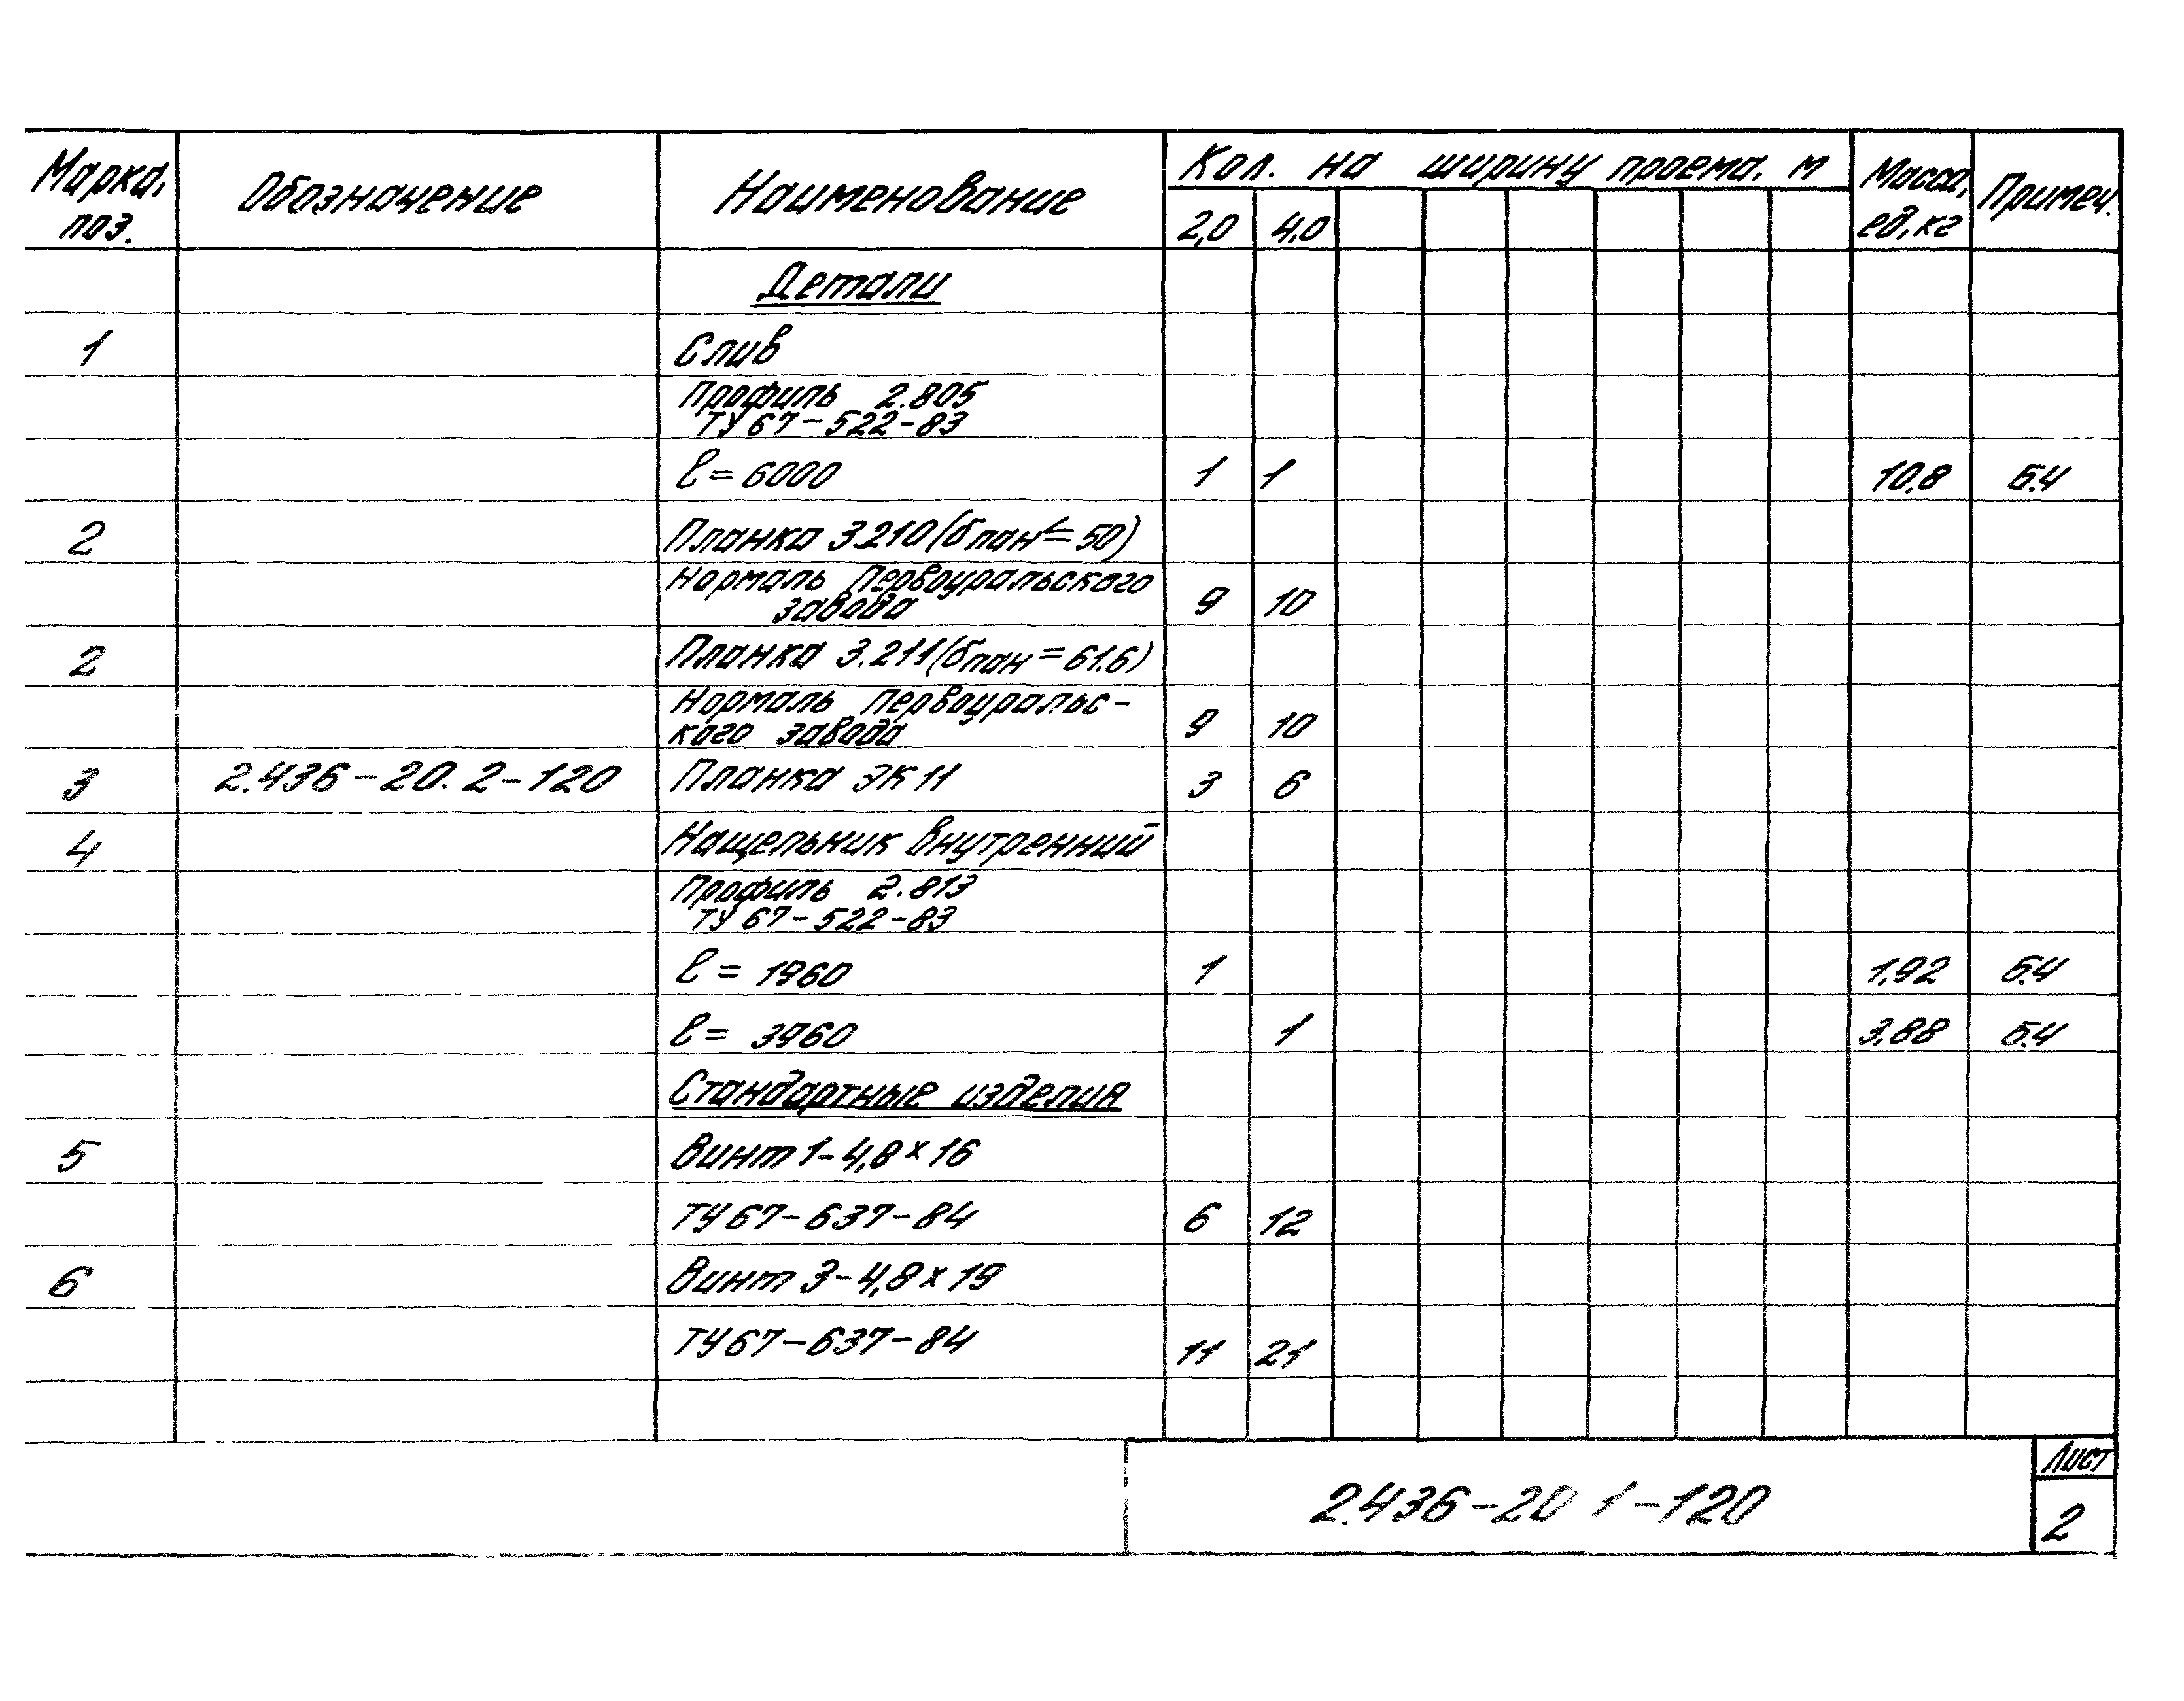 Марка, поз. Обозначение Наименование Кол. на ширину проема, м Масса, ед, кг Примеч.
2,0 4,0
Детали
1 Слив
Профиль 2.805
ТУ 67-522-83
ℓ = 6000 1 1 10,8 Б.Ч
2 Планка 3.210 (бпан ≤ 50)
Нормаль Первоуральского
завода 9 10
2 Планка 3.211 (бпан = 61.6)
Нормаль Первоуральс-
кого завода 9 10
3 2.436-20.2-120 Планка ЭК11 3 6
4 Нащельник внутренний
Профиль 2.813
ТУ 67-522-83
ℓ = 1960 1 1,92 Б.Ч
ℓ = 3960 1 3,88 Б.Ч
Стандартные изделия
5 Винт 1-4,8×16
ТУ 67-637-84 6 12
6 Винт 3-4,8×19
ТУ 67-637-84 11 21
2.436-20 1-120
Лист
2